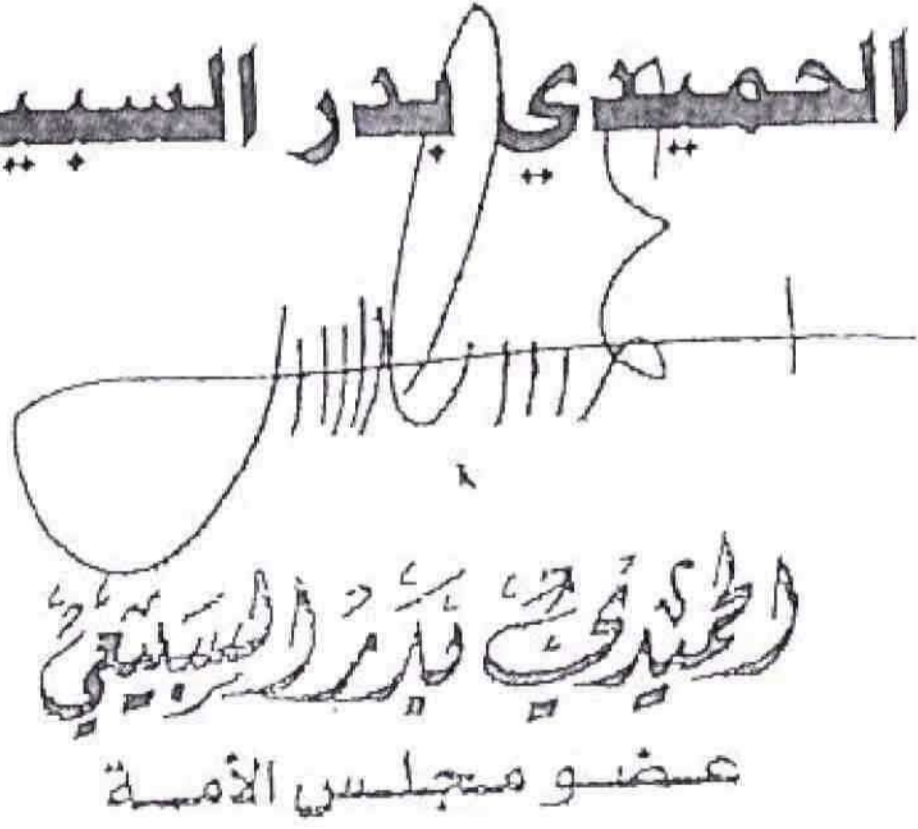 الحميدي بدر السبيـ
الحميدي بدر السبيعي
عضو مجلس الأمة